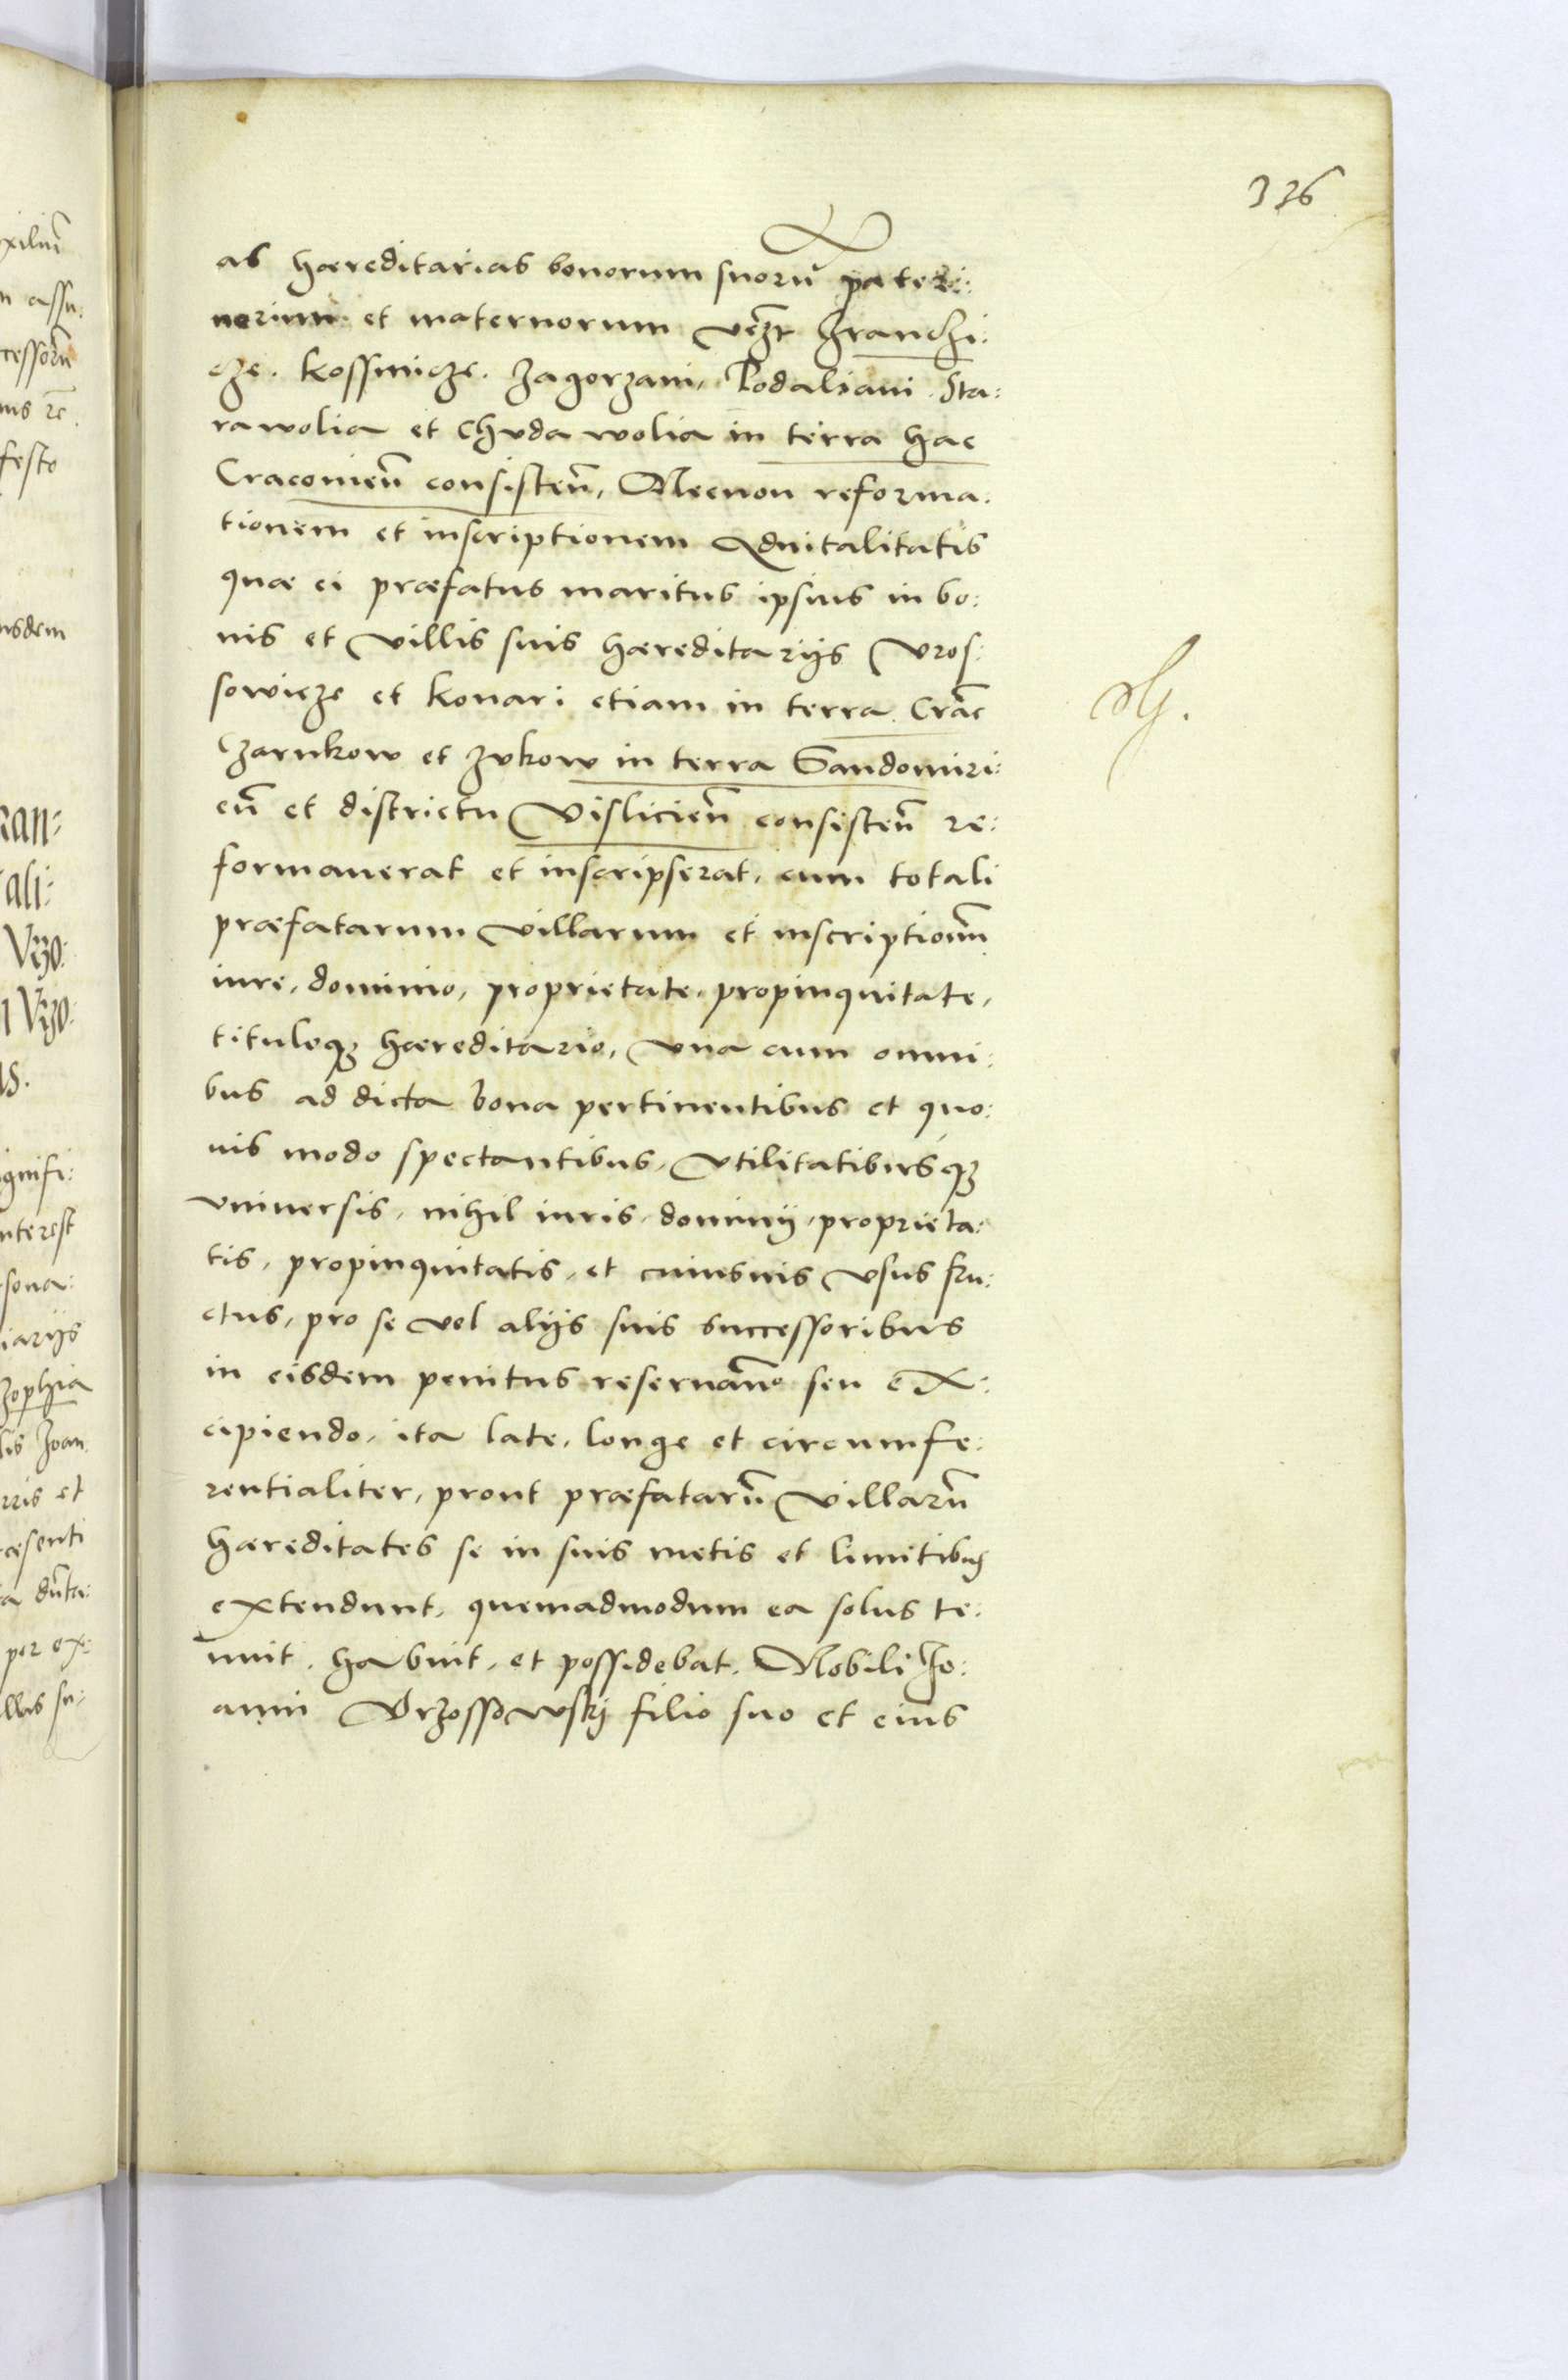 326
as hæreditarias bonorum suorũ pater:
norum et maternorum Vcȝt Grandzi:
cze. Kossmicze. Zagorzani, Podaliani. Sta:
rawolia et Chuda wolia in terra hac
Cracovień consisteñ, Necnon reforma:
tionem et inscriptionem Aduitalitatis
quæ ei præfatus maritus ipsius in bo:
nis et Villis suis hæreditarijs Vros:
sowicze et Konari etiam in terra Crac̃
Czarnkow et Zukow in terra Sandomiri:
eñ et districtu Vislicieñ consisteñ re:
formauerat et inscripserat, cum totali
præfatarum Villarum et inscriptionũ
iure, dominio, proprietate, propinquitate,
tituloqȝ hæreditario, Vna cum omni:
bus ad dicta bona pertinentibus et quo:
uis modo spectantibus, Vtilitatibusqȝ
Vniuersis, nihil iuris, dominij, proprieta:
tis, propinquitatis, et cuiusuis Vsus fru:
ctus, pro se Vel alijs suis successoribus
in eisdem penitus reseruañ seu ex:
cipiendo, ita late, longe et circumfe:
rentialiter, prout præfatarũ Villarũ
hæreditates se in suis metis et limitibus
extendunt, quemadmodum ea solus te:
nuit, habuit, et possidebat, Nobili Jo:
anni Vrzossowskij filio suo et eius
xiliũ
n assu:
cessorũ
festo
usdem
ran:
ali:
Vyo:
Vyo:
is.
ignifi:
nterest
sona:
iarijs
Zophia
lis Joan
rris et
ræsenti
a dũta:
per ex:
llis su: